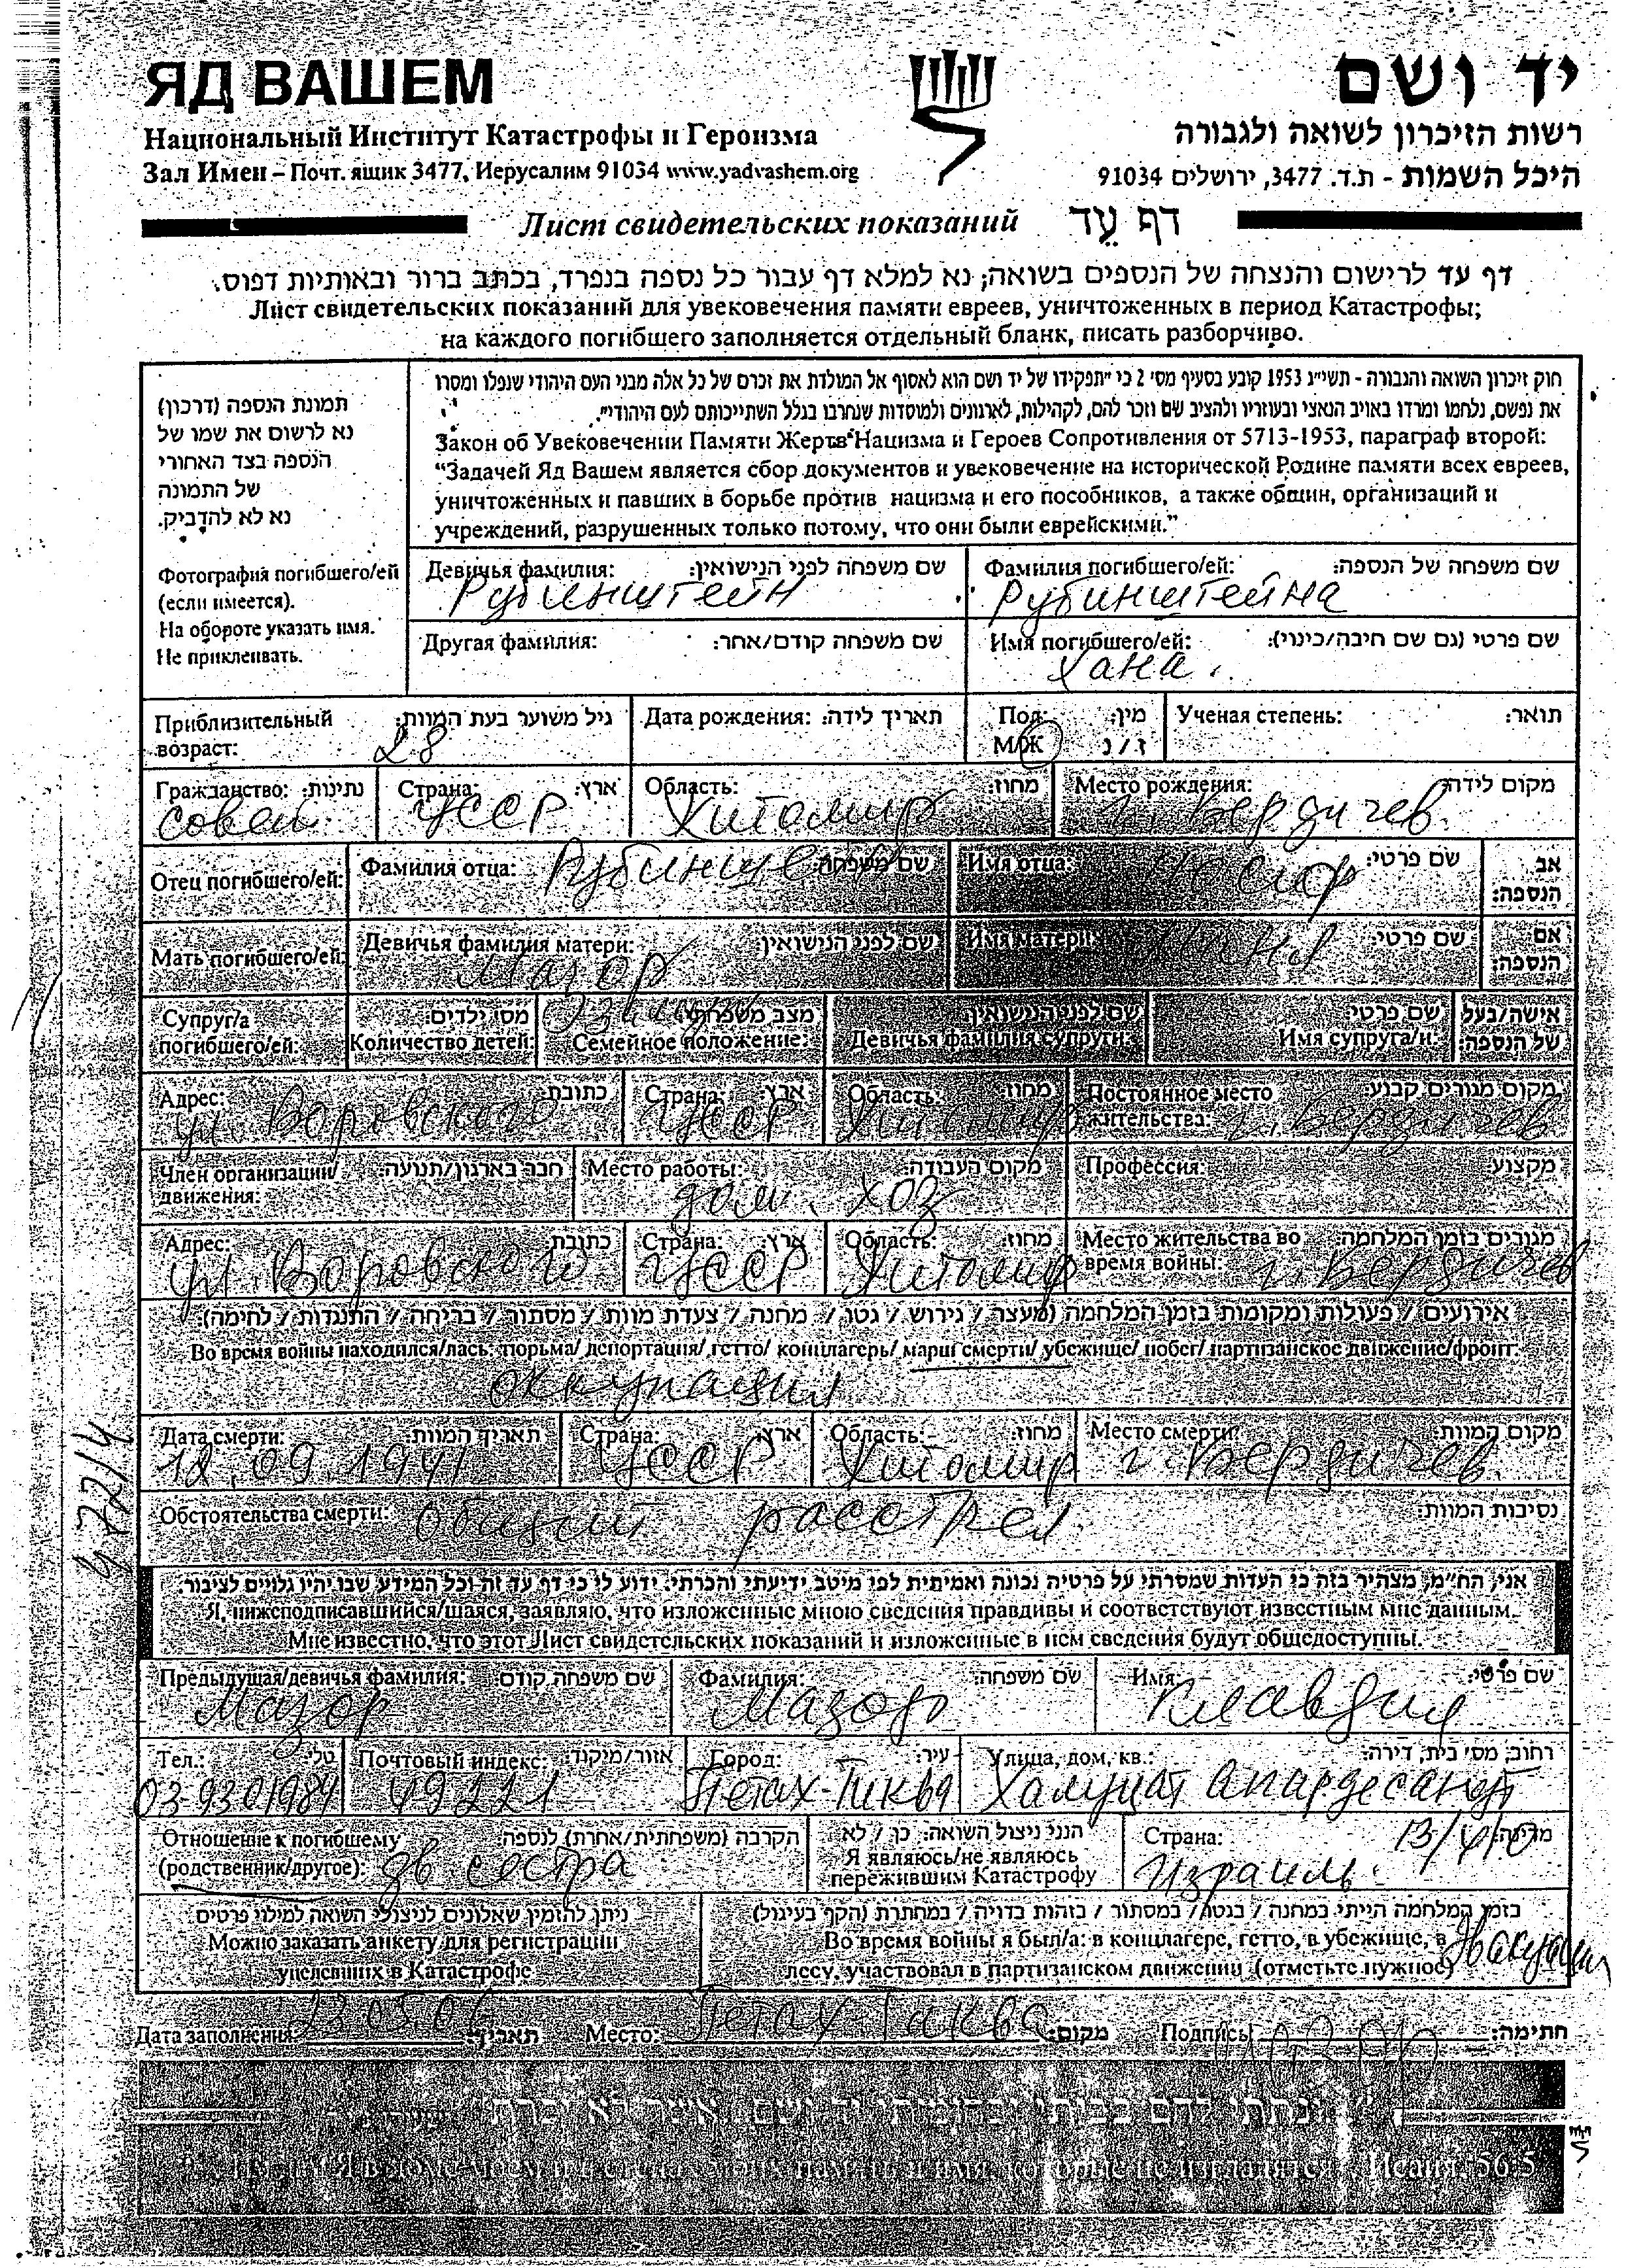 ЯД ВАШЕМ
יד ושם
Национальный Институт Катастрофы и Героизма
רשות הזיכרון לשואה ולגבורה
Зал Имен – Почт. ящик 3477, Иерусалим 91034 www.yadvashem.org
היכל השמות - ת.ד. 3477, ירושלים 91034
Лист свидетельских показаний דף עֵד
דף עד לרישום והנצחה של הנספים בשואה; נא למלא דף עבור כל נספה בנפרד, בכתב ברור ובאותיות דפוס.
Лист свидетельских показаний для увековечения памяти евреев, уничтоженных в период Катастрофы;
на каждого погибшего заполняется отдельный бланк, писать разборчиво.
תמונת הנספה (דרכון)
נא לרשום את שמו של
הנספה בצד האחורי
של התמונה
נא לא להדביק.
Фотография погибшего/ей
(если имеется).
На обороте указать имя.
Не приклеивать.
חוק זיכרון השואה והגבורה - תשי"ג 1953 קובע בסעיף מס' 2 כי "תפקידו של יד ושם הוא לאסוף אל המולדת את זכרם של כל אלה מבני העם היהודי שנפלו ומסרו
את נפשם, נלחמו ומרדו באויב הנאצי ובעוזריו ולהציב שם וזכר להם, לקהילות, לארגונים ולמוסדות שנחרבו בגלל השתייכותם לעם היהודי".
Закон об Увековечении Памяти Жертв Нацизма и Героев Сопротивления от 5713-1953, параграф второй:
“Задачей Яд Вашем является сбор документов и увековечение на исторической Родине памяти всех евреев,
уничтоженных и павших в борьбе против нацизма и его пособников, а также общин, организаций и
учреждений, разрушенных только потому, что они были еврейскими.”
Девичья фамилия: שם משפחה לפני הנישואין: Фамилия погибшего/ей: שם משפחה של הנספה:
Рубинштейн Рубинштейна
Другая фамилия: שם משפחה קודם/אחר: Имя погибшего/ей: שם פרטי (גם שם חיבה/כינוי):
Хана.
Приблизительный גיל משוער בעת המוות: Дата рождения: תאריך לידה: Пол: מין: Ученая степень: תואר:
возраст: 28 М/Ж ז / נ
Гражданство: נתינות: Страна: ארץ: Область: מחוז: Место рождения: מקום לידה:
УССР Житомир г. Бердичев.
Отец погибшего/ей: Фамилия отца: שם משפחה: Имя отца: שם פרטי: אב הנספה:
Мать погибшего/ей: Девичья фамилия матери: שם לפני הנישואין: Имя матери: שם פרטי: אם הנספה:
Мазор
Супруг/а מס' ילדים: מצב משפחתי: שם לפני הנישואין: שם פרטי: אישה/בעל
погибшего/ей: Количество детей: Семейное положение: Девичья фамилия супруги: Имя супруга/и: של הנספה:
Адрес: כתובת: Страна: ארץ: Область: מחוז: Постоянное место מקום מגורים קבוע:
жительства:
ул. Воровского УССР Житомир г. Бердичев
Член организации/ חבר בארגון/תנועה: Место работы: מקום העבודה: Профессия: מקצוע:
движения: дом. хоз
Адрес: כתובת: Страна: ארץ: Область: מחוז: Место жительства во מגורים בזמן המלחמה:
время войны:
ул. Воровского УССР Житомир г. Бердичев
אירועים / פעולות ומקומות בזמן המלחמה (מעצר / גירוש / גטו / מחנה / צעדת מוות / מסתור / בריחה / התנגדות / לחימה):
Во время войны находился/лась: тюрьма/ депортация/ гетто/ концлагерь/ марш смерти/ убежище/ побег/ партизанское движение/фронт:
оккупация
Дата смерти: תאריך המוות: Страна: ארץ: Область: מחוז: Место смерти: מקום המוות:
12.09.1941 УССР Житомир г. Бердичев.
Обстоятельства смерти: общий расстрел. נסיבות המוות:
אני, הח"מ, מצהיר בזה כי העדות שמסרתי על פרטיה נכונה ואמיתית לפי מיטב ידיעתי והכרתי. ידוע לי כי דף עד זה וכל המידע שבו יהיו גלויים לציבור.
Я, нижеподписавшийся/шаяся, заявляю, что изложенные мною сведения правдивы и соответствуют известным мне данным.
Мне известно, что этот Лист свидетельских показаний и изложенные в нем сведения будут общедоступны.
Предыдущая/девичья фамилия: שם משפחה קודם: Фамилия: שם משפחה: Имя: שם פרטי:
Мазор Мазор Клавдия
Тел.: טל': Почтовый индекс: אזור/מיקוד: Город: עיר: Улица, дом, кв.: רחוב, מס' בית, דירה:
03-9301984 49221 Петах-Тиква Халуцат Апардесанут
13/40
Отношение к погибшему הקרבה (משפחתית/אחרת) לנספה: הנני ניצול השואה: כן / לא Страна: מדינה:
(родственник/другое): дв сестра Я являюсь/не являюсь Израиль.
пережившим Катастрофу
ניתן להזמין שאלונים לניצולי השואה למילוי פרטים בזמן המלחמה הייתי במחנה / בגטו / במסתור / בזהות בדויה / במחתרת (הקף בעיגול)
Можно заказать анкету для регистрации Во время войны я был/а: в концлагере, гетто, в убежище, в
уцелевших в Катастрофе лесу, участвовал в партизанском движении (отметьте нужное)
Эвакуации
Дата заполнения: 23.05.06 תאריך: Место: Петах-Тиква מקום: Подпись: חתימה:
Исаия, 56:5